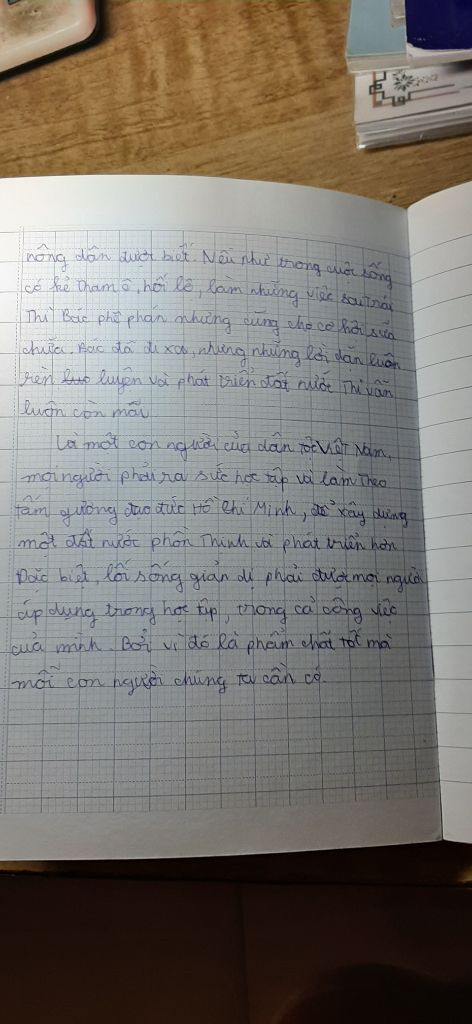 nông dân được biết. Nếu như trong cuộc sống
có kẻ tham ô, hối lộ, làm những việc sai trái
Thì Bác phê phán nhưng cũng cho cơ hội sửa
chữa. Bác đã đi xa, nhưng những lời dăn luôn
rèn luyện và phát triển đất nước Thì vẫn
luôn còn mãi.
Là một con người của dân tộc Việt Nam,
mọi người phải ra sức học tập và làm Theo
tấm gương đạo đức Hồ Chí Minh, để xây dựng
một đất nước phồn Thinh và phát triển hơn
Đặc biệt, lối sống giản dị phải được mọi người
áp dụng trong học tập, trong cả công việc
của mình. Bởi vì đó là phẩm chất tốt mà
mỗi con người chúng ta cần có.